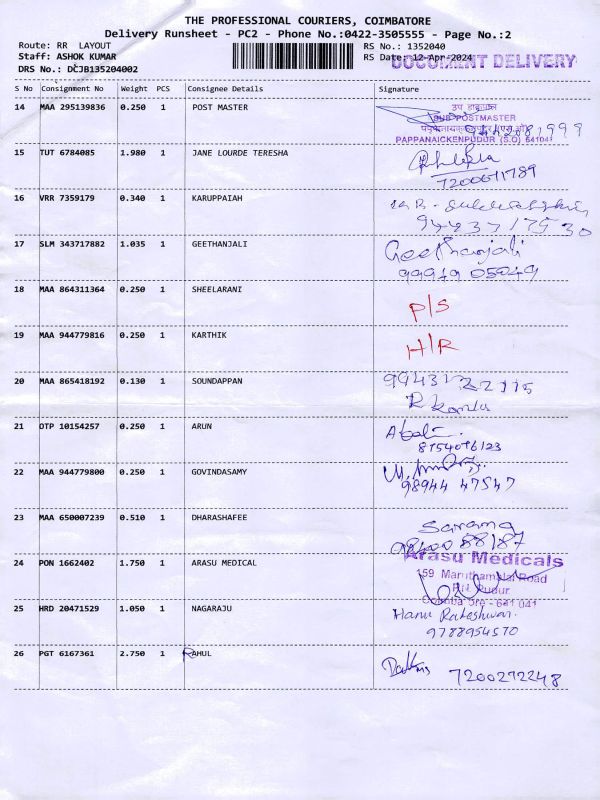 THE PROFESSIONAL COURIERS, COIMBATORE
Delivery Runsheet - PC2 - Phone No.:0422-3505555 - Page No.:2
Route: RR LAYOUT
RS No.: 1352040
Staff: ASHOK KUMAR
RS Date: 12-Apr-2024
DOCUMENT DELIVERY
DRS No.: DCJB135204002
S No Consignment No Weight PCS Consignee Details Signature
14 MAA 295139836 0.250 1 POST MASTER
उप डाकपाल
SUB POSTMASTER
PAPPANAICKENPUDUR (S.O) 641041
15 TUT 6784085 1.980 1 JANE LOURDE TERESHA
16 VRR 7359179 0.340 1 KARUPPAIAH
17 SLM 343717882 1.035 1 GEETHANJALI Geethanjali
99949 05049
18 MAA 864311364 0.250 1 SHEELARANI P/S
19 MAA 944779816 0.250 1 KARTHIK H/R
20 MAA 865418192 0.130 1 SOUNDAPPAN
21 OTP 10154257 0.250 1 ARUN
8754096123
22 MAA 944779800 0.250 1 GOVINDASAMY
98944 47547
23 MAA 650007239 0.510 1 DHARASHAFEE
88187
24 PON 1662402 1.750 1 ARASU MEDICAL Arasu Medicals
159 Maruthamalai Road
Pudur
641 041
25 HRD 20471529 1.050 1 NAGARAJU
9788954570
26 PGT 6167361 2.750 1 RAHUL 7200272248